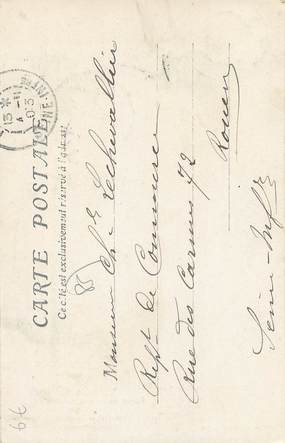 CARTE POSTALE
Ce côté est exclusivement réservé à l'adresse
Monsieur Ch. Lechevallier
Rept de Commerce
Rue des Carmes 72
Rouen
Seine-Infre
85